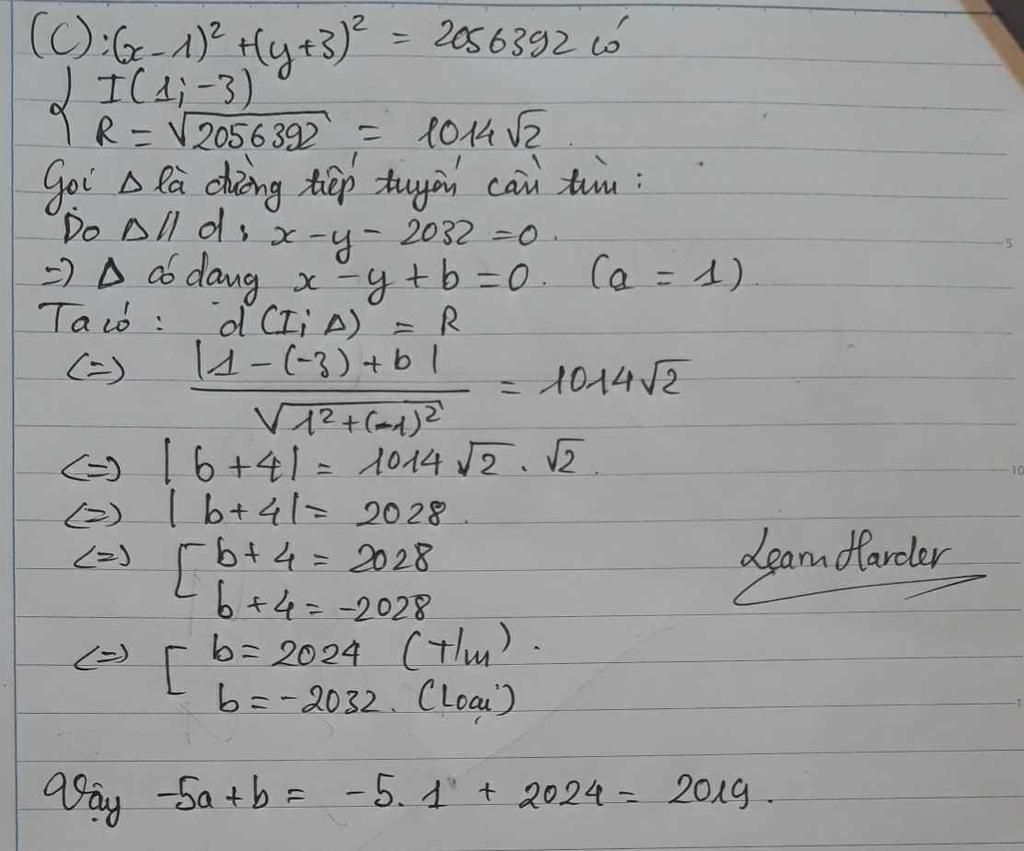 (C): (x-1)² + (y+3)² = 2056392 có
{ I(1; -3)
R = √2056392 = 1014√2.
Gọi Δ là đường tiếp tuyến cần tìm :
Do Δ // d: x - y - 2032 = 0.
=) Δ có dạng x - y + b = 0. (a = 1)
Ta có : d(I; Δ) = R
<=> |1 - (-3) + b| / √1² + (-1)² = 1014√2
<=> |b + 4| = 1014√2 . √2.
<=> |b + 4| = 2028.
<=> [ b + 4 = 2028
b + 4 = -2028
Learn Harder
<=> [ b = 2024 (T/m).
b = -2032. (Loại)
Vậy -5a + b = -5. 1 + 2024 = 2019.